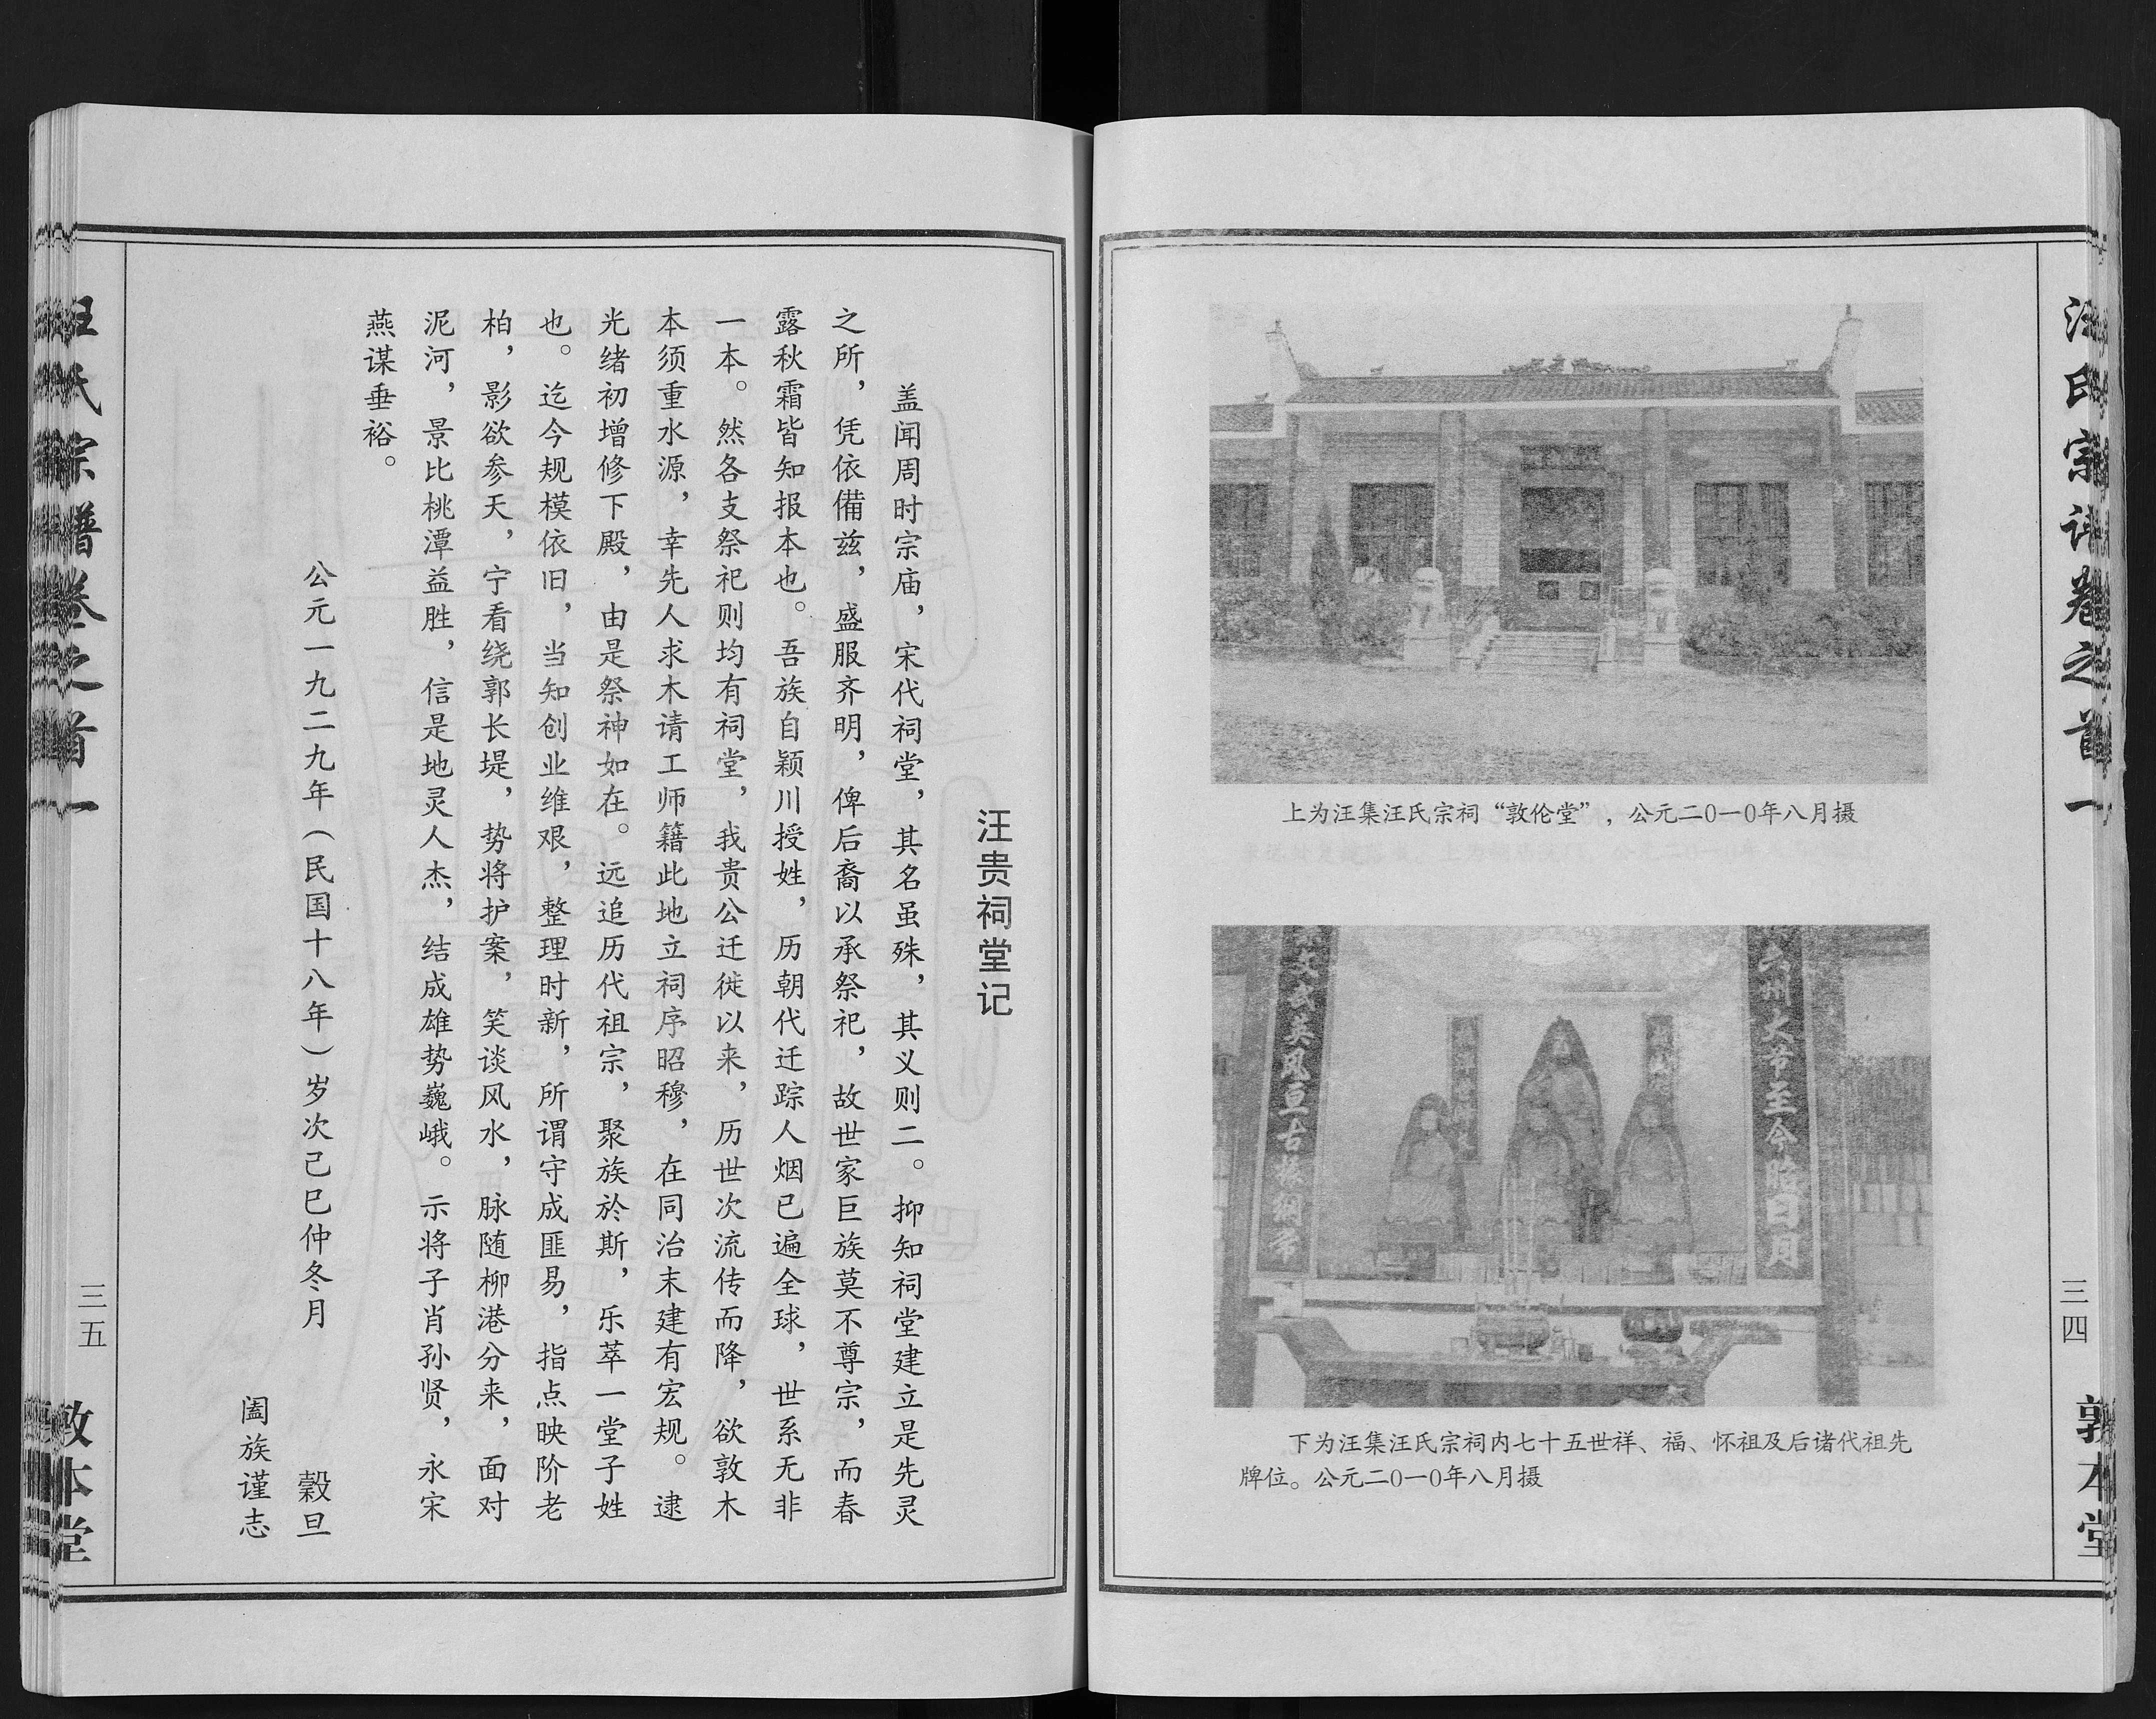 汪氏宗谱卷之首一
三四
敦本堂
上为汪集汪氏宗祠“敦伦堂”，公元二0一0年八月摄
六州大帝至今昭日月
文武英风亘古振纲常
下为汪集汪氏宗祠内七十五世祥、福、怀祖及后诸代祖先
牌位。公元二0一0年八月摄
汪贵祠堂记
盖闻周时宗庙，宋代祠堂，其名虽殊，其义则二。抑知祠堂建立是先灵
之所，凭依備兹，盛服齐明，俾后裔以承祭祀，故世家巨族莫不尊宗，而春
露秋霜皆知报本也。吾族自颍川授姓，历朝代迁踪人烟已遍全球，世系无非
一本。然各支祭祀则均有祠堂，我贵公迁徙以来，历世次流传而降，欲敦木
本须重水源，幸先人求木请工师籍此地立祠序昭穆，在同治末建有宏规。逮
光绪初增修下殿，由是祭神如在。远追历代祖宗，聚族於斯，乐萃一堂子姓
也。迄今规模依旧，当知创业维艰，整理时新，所谓守成匪易，指点映阶老
柏，影欲参天，宁看绕郭长堤，势将护案，笑谈风水，脉随柳港分来，面对
泥河，景比桃潭益胜，信是地灵人杰，结成雄势巍峨。示将子肖孙贤，永宋
燕谋垂裕。
公元一九二九年（民国十八年）岁次己巳仲冬月 榖旦
阖族谨志
汪氏宗谱卷之首一
三五
敦本堂